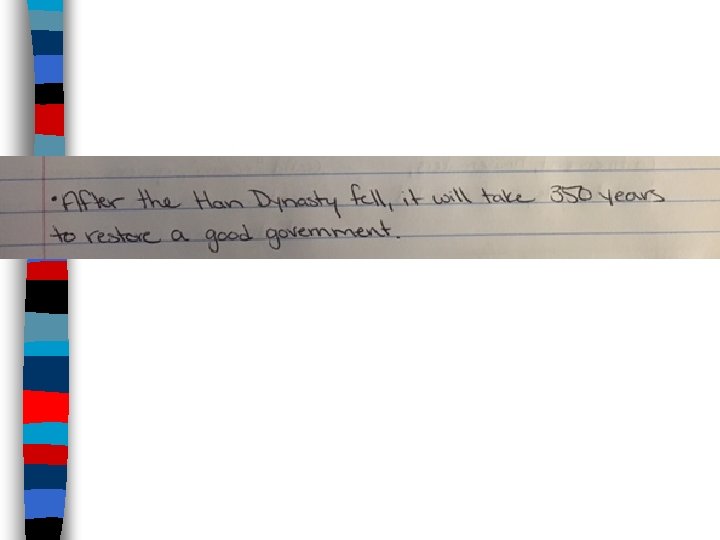 •After the Han Dynasty fell, it will take 350 years
to restore a good government.